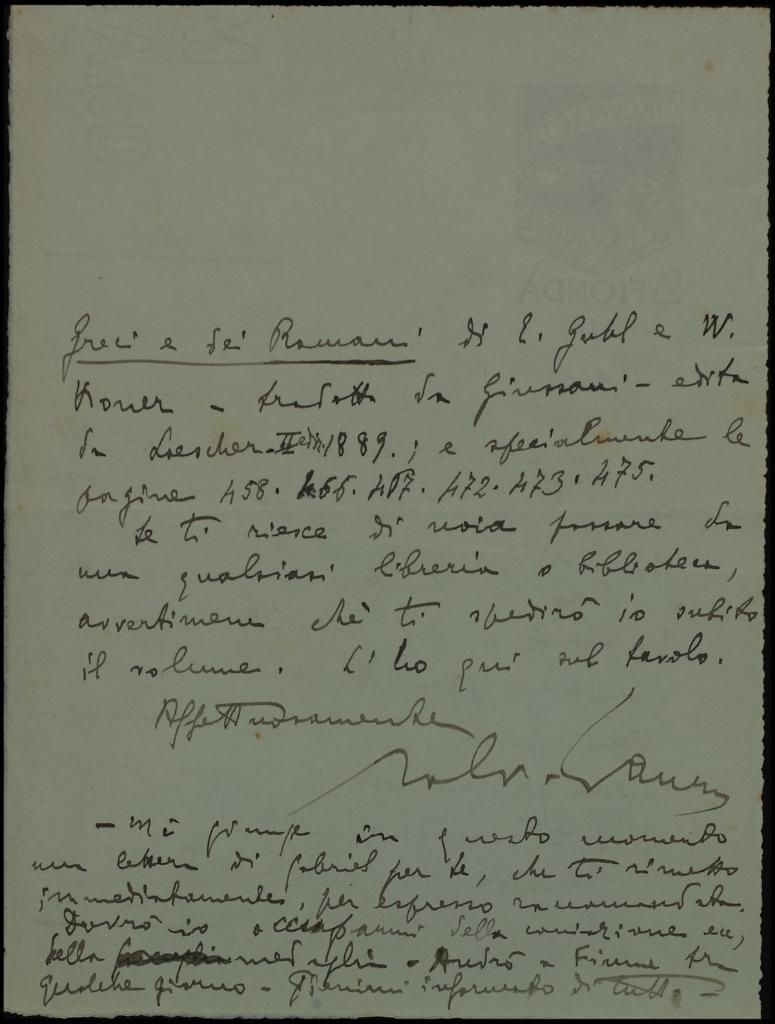 Greci e dei Romani di E. Guhl e W.
Koner - tradotta da Giussani - edita
da Loescher - II ediz. 1889.; e specialmente le
pagine 458. 466. 467. 472. 473. 475.
Se ti riesce di noia passare da
una qualsiasi libreria o biblioteca,
avvertimene chè ti spedirò io subito
il volume. L'ho qui sul tavolo.
Affettuosamente
- Mi giunge in questo momento
una lettera di Gabriel per te, che ti rimetto
immediatamente, per espresso raccomandata.
Dovrò io occuparmi della coniazione ecc,
della medaglia - Andrò a Fiume tra
qualche giorno - Tienimi informato di tutto -